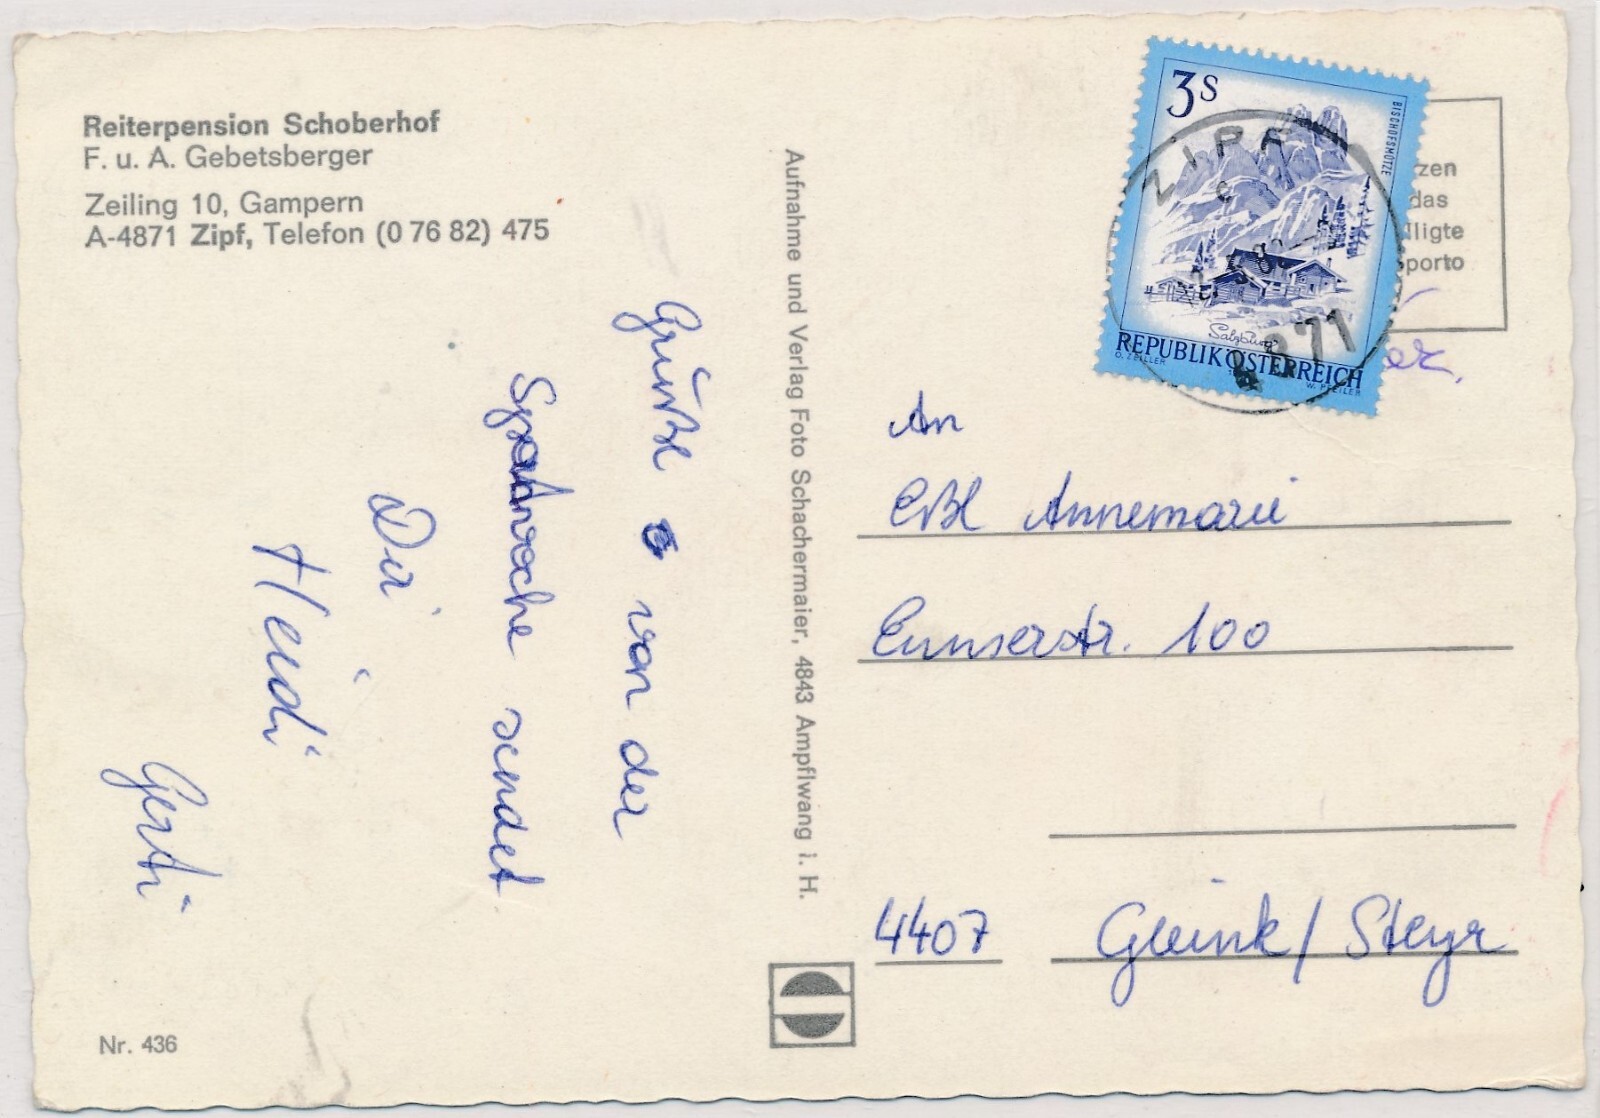 Reiterpension Schoberhof
F. u. A. Gebetsberger
Zeiling 10, Gampern
A-4871 Zipf, Telefon (0 76 82) 475
Grüße von der
Sportwoche sendet
Dir
Heidi
Gerti
Nr. 436
Aufnahme und Verlag Foto Schachermaier, 4843 Ampflwang i. H.
3 S
BISCHOFSMÜTZE
Salzburg
REPUBLIK ÖSTERREICH
O. ZEILLER
W. PFEILER
ZIPF
4871
zen
das
lligte
porto
An
Eßl Annemarie
Ennserstr. 100
4407 Gleink / Steyr